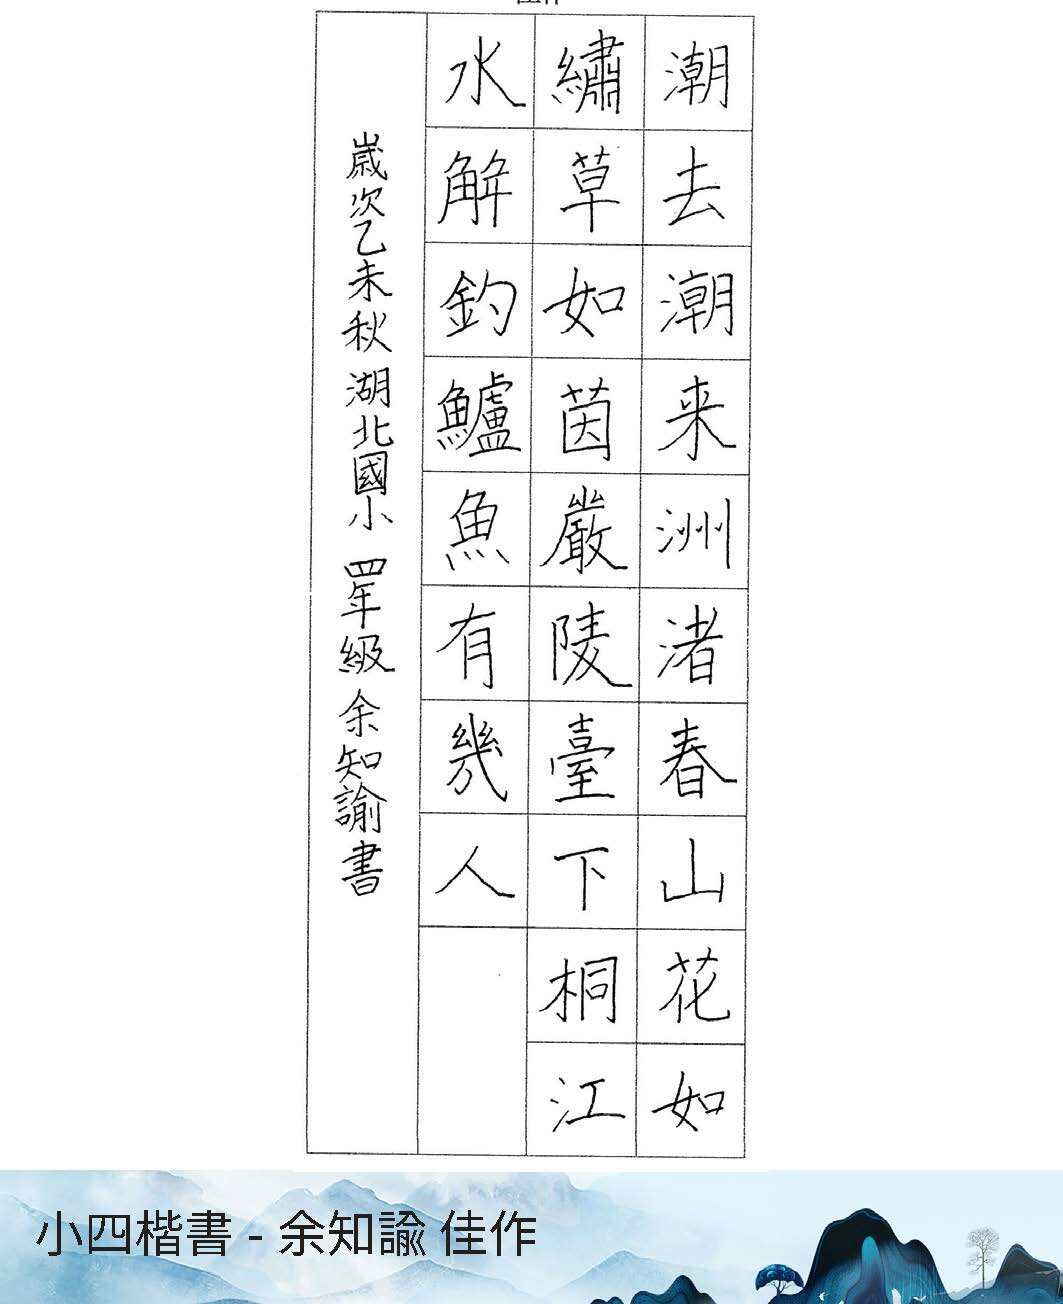 佳作
潮去潮来洲渚春山花如
繡草如茵嚴陵臺下桐江
水解釣鱸魚有幾人
歲次乙未秋 湖北國小 四年級 余知諭書
小四楷書 - 余知諭 佳作